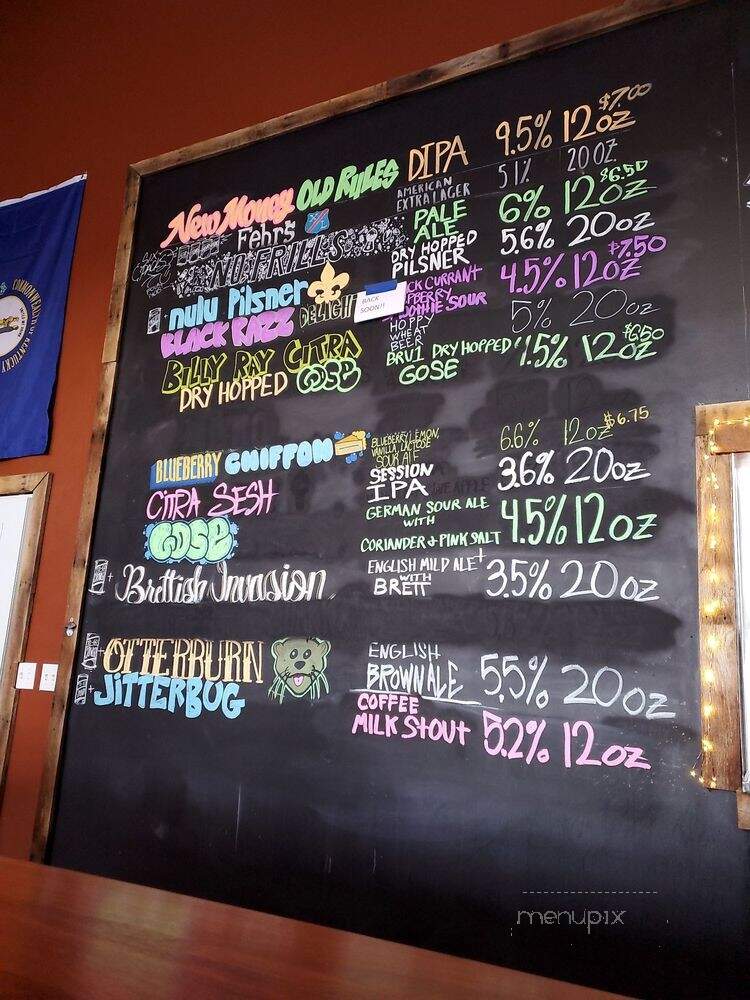 New Money Old Rules DIPA 9.5% 12oz $7.00
Fehr's AMERICAN EXTRA LAGER 5.1% 20oz
NO FRILLS PALE ALE 6% 12oz $6.50
nulu Pilsner DRY HOPPED PILSNER 5.6% 20oz
BLACK RAZZ DELIGHT CURRANT SOUR 4.5% 12oz $7.50
BACK SOON!!
HOPPY WHEAT BEER 5% 20oz
BILLY RAY CITRA
DRY HOPPED GOSE DRY HOPPED GOSE 12oz $6.50
BLUEBERRY CHIFFON BLUEBERRY, LEMON, VANILLA, LACTOSE SOUR ALE 6.6% 12oz $6.75
CITRA SESH SESSION IPA 3.6% 20oz
GOSE GERMAN SOUR ALE WITH CORIANDER & PINK SALT 4.5% 12oz
+ Brettish Invasion ENGLISH MILD ALE WITH BRETT 3.5% 20oz
+ OTTERBURN ENGLISH BROWN ALE 5.5% 20oz
+ JITTERBUG COFFEE MILK STOUT 5.2% 12oz
COMMONWEALTH OF KENTUCKY
menupix